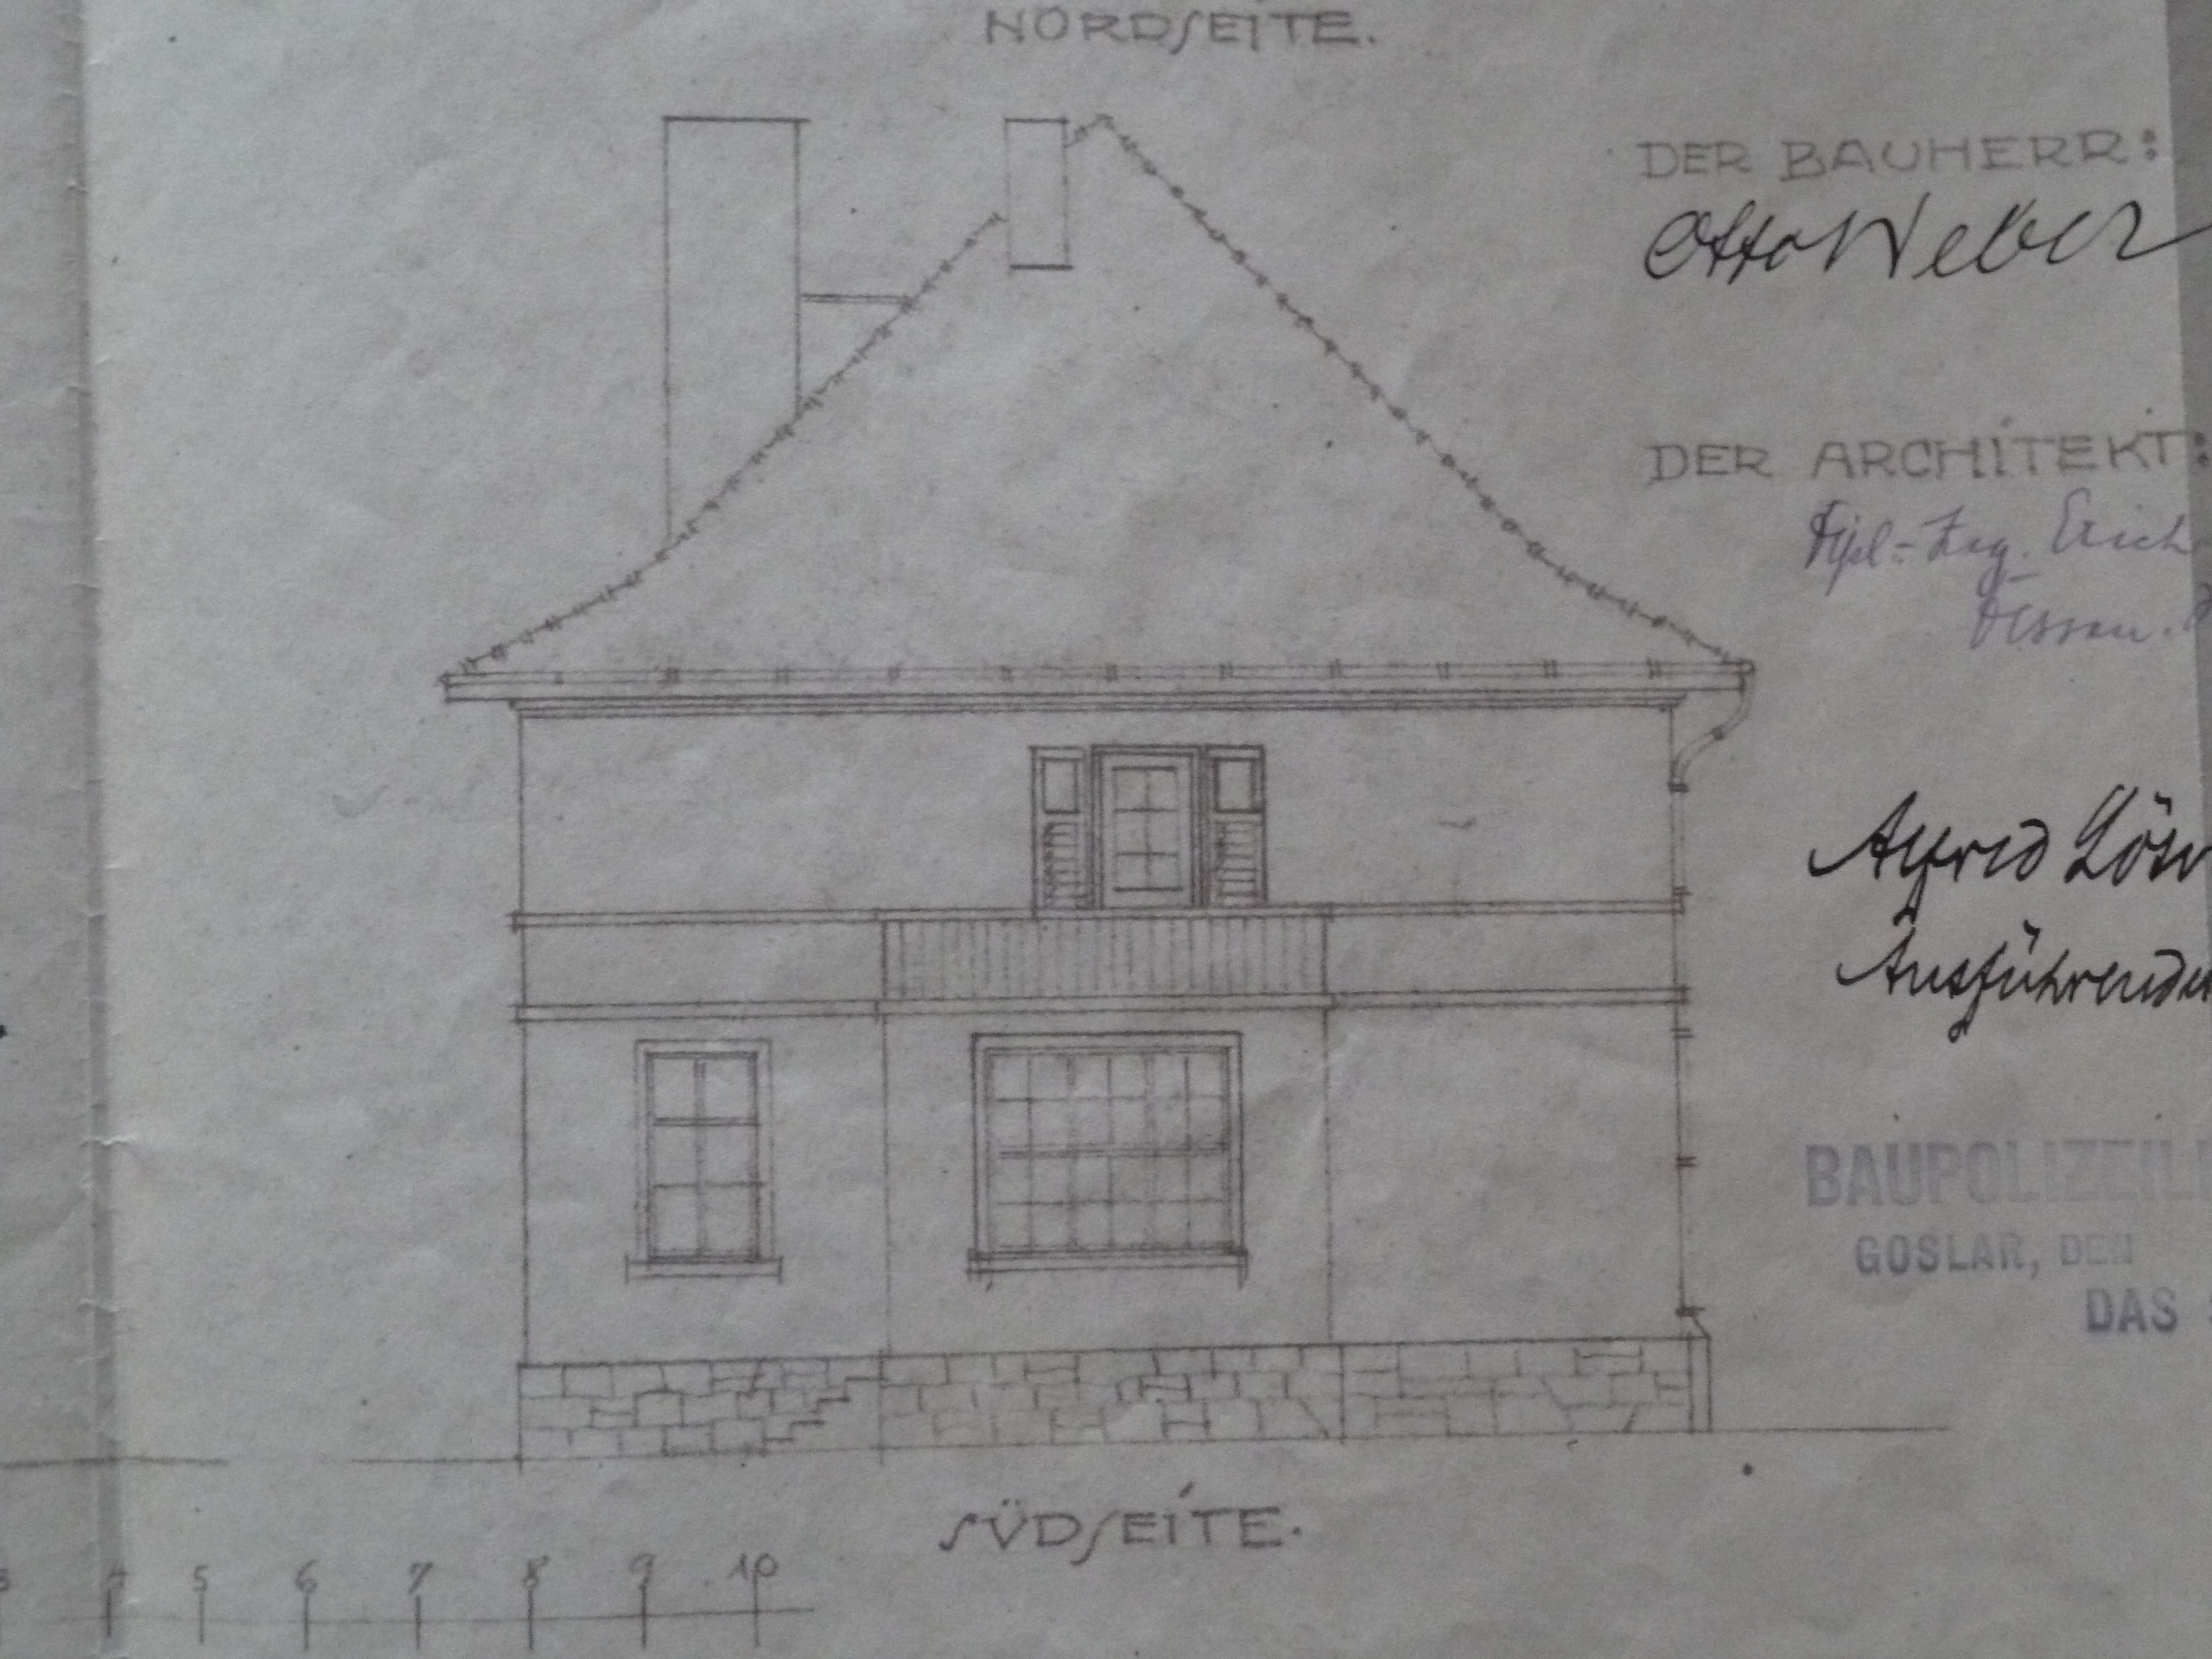 NORDSEITE.
DER BAUHERR:
Otto Weber
DER ARCHITEKT:
Dipl.-Ing. Erich
Dessau.
Alfred
Ausführender
BAUPOLIZEIL
GOSLAR, DEN
DAS
SÜDSEITE.
3 4 5 6 7 8 9 10